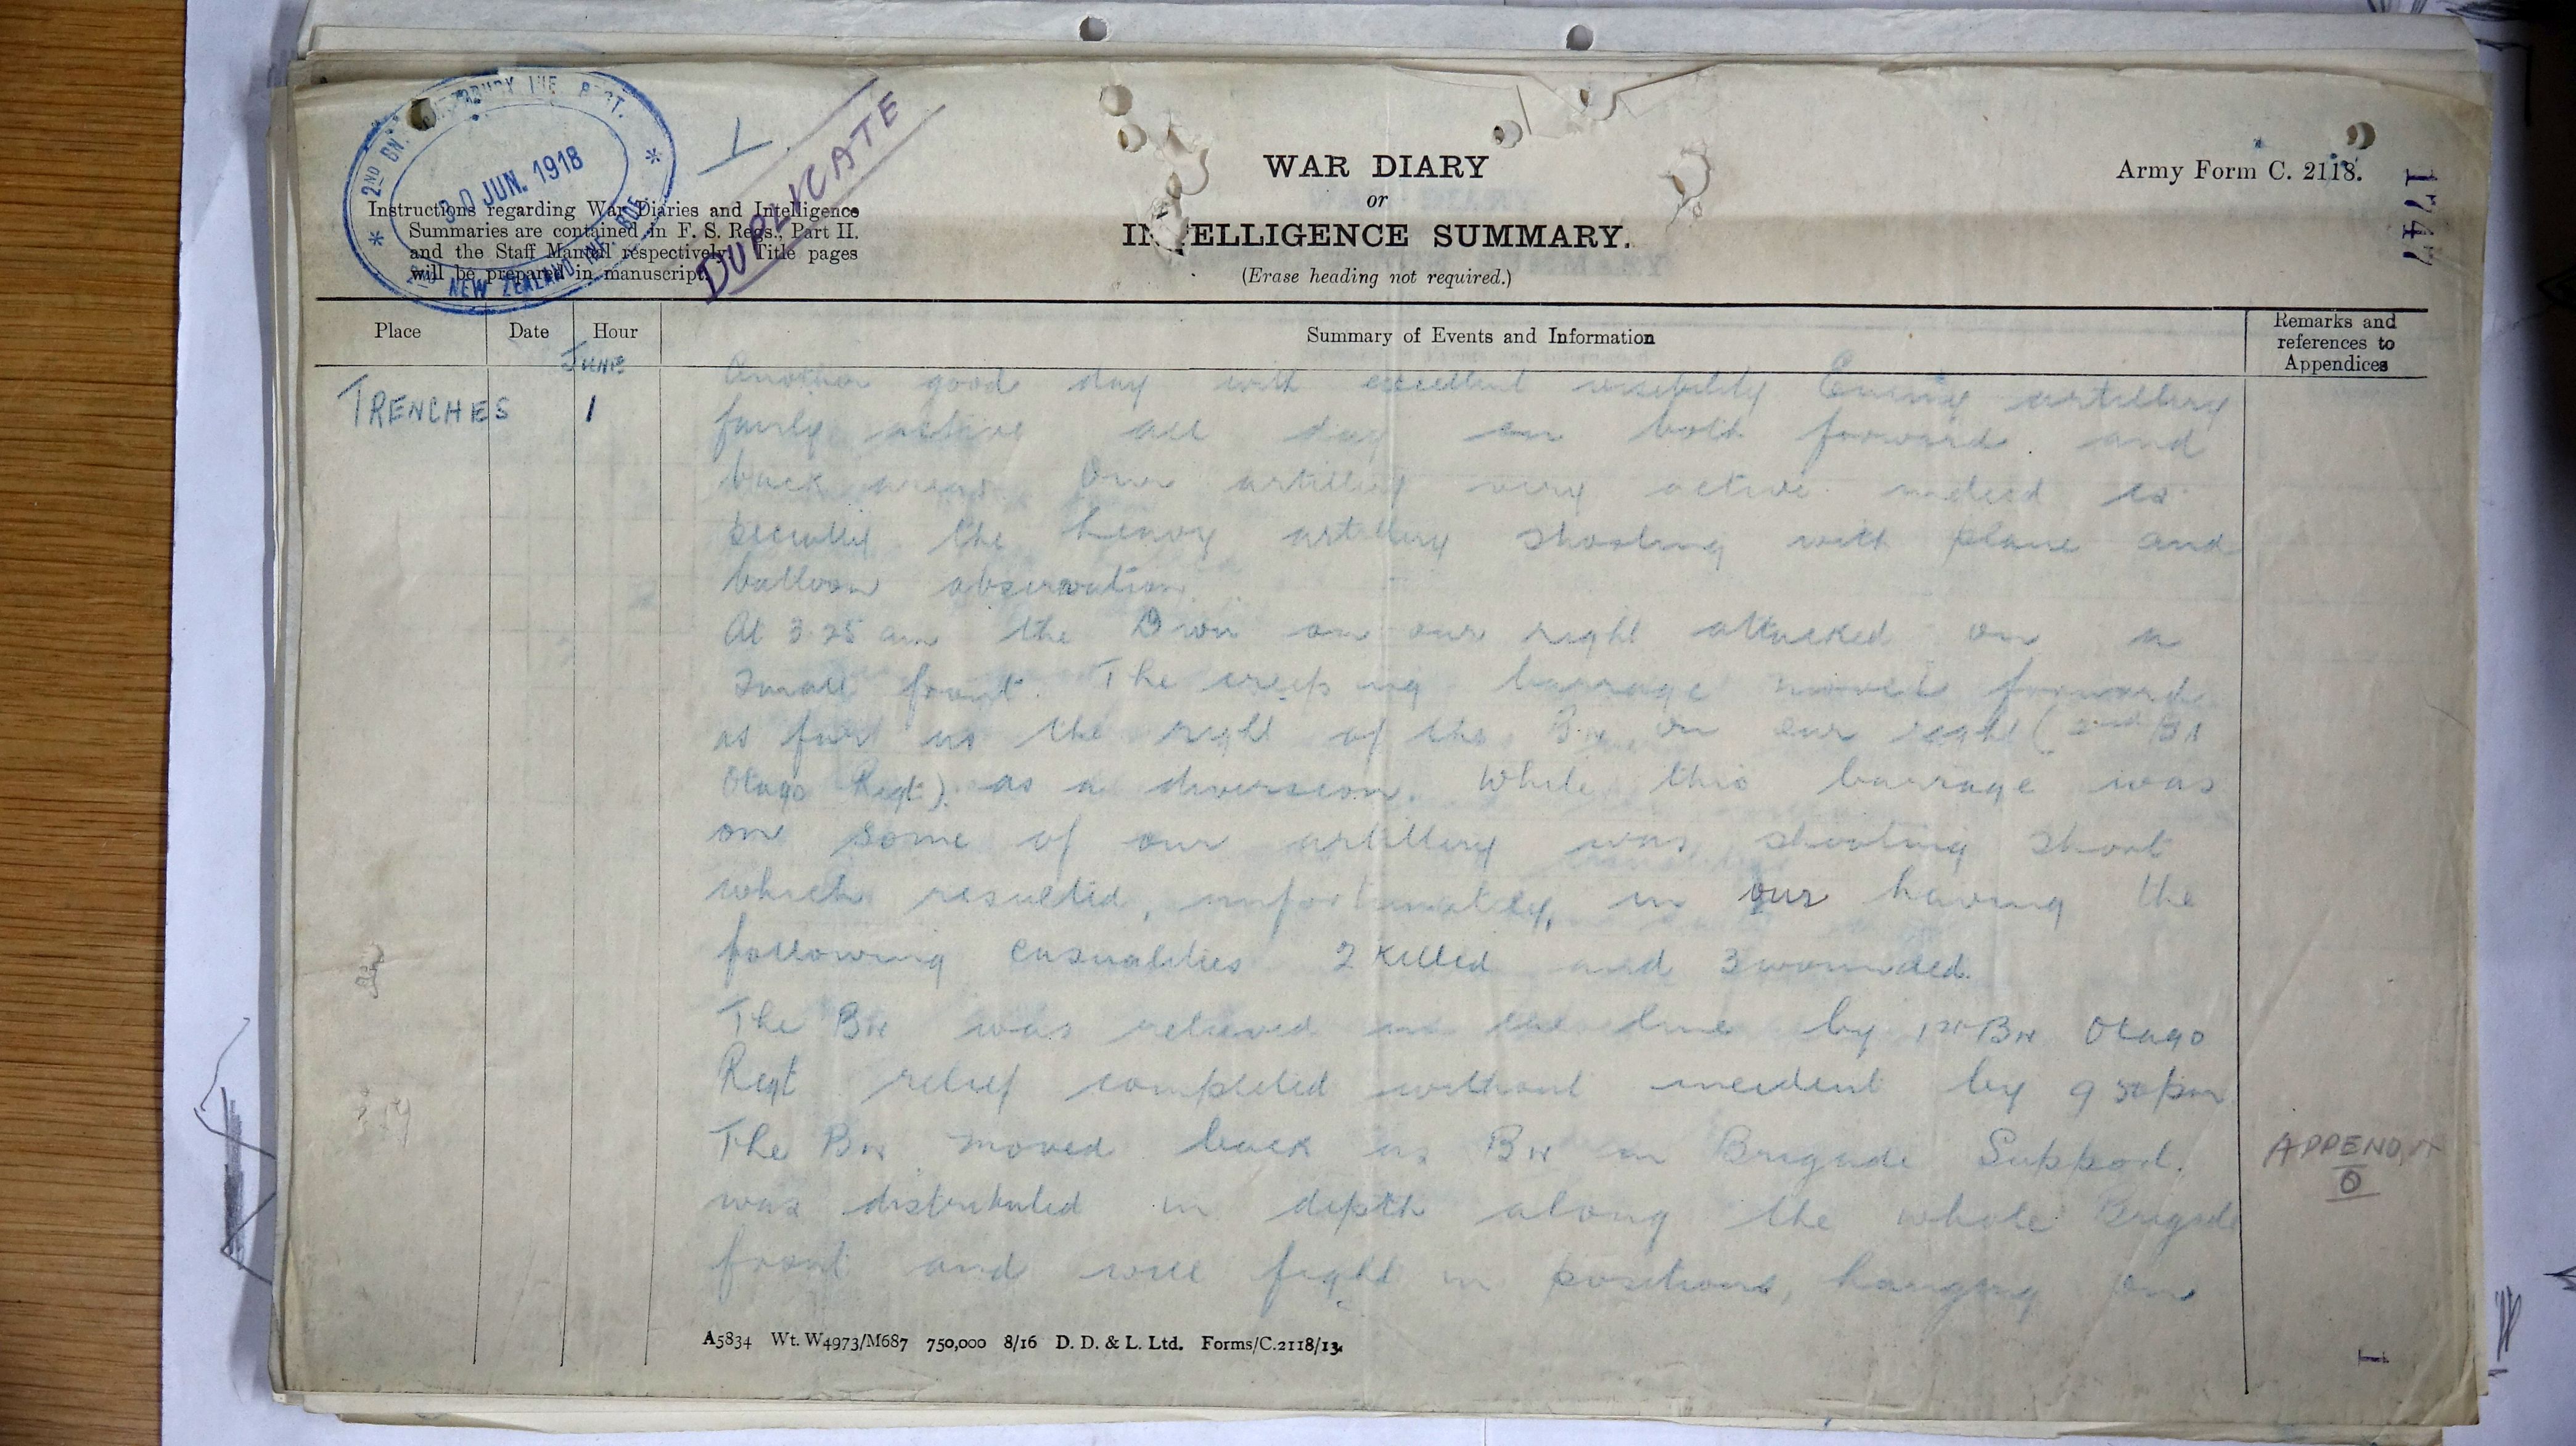 2ND BN. CANTERBURY INF. REGT.
30 JUN. 1918
2ND NEW ZEALAND INF. BDE.
DUPLICATE
WAR DIARY
or
INTELLIGENCE SUMMARY.
(Erase heading not required.)
Army Form C. 2118.
1747
Instructions regarding War Diaries and Intelligence
Summaries are contained in F. S. Regs., Part II.
and the Staff Manual respectively. Title pages
will be prepared in manuscript.
Place Date Hour Summary of Events and Information Remarks and
references to
Appendices
JUNE
TRENCHES 1
Another good day with excellent visibility Enemy artillery
fairly active all day on both forward and
back areas. Our artillery very active indeed es-
pecially the heavy artillery shooting with plane and
balloon observation.
At 3.25 am the Divn on our right attacked on a
small front. The creeping barrage moved forward
as far as the right of the Bn on our right (2nd Bn
Otago Regt) as a diversion. While this barrage was
on some of our artillery was shooting short
which resulted, unfortunately, in our having the
following casualties 2 killed and 3 wounded.
The Bn was relieved in the line by 1st Bn Otago
Regt relief completed without incident by 9 50 pm
The Bn moved back as Bn in Brigade Support.
was distributed in depth along the whole Brigade
front and will fight in positions, hanging on
APPENDIX
O
A5834 Wt. W4973/M687 750,000 8/16 D. D. & L. Ltd. Forms/C.2118/13.
1